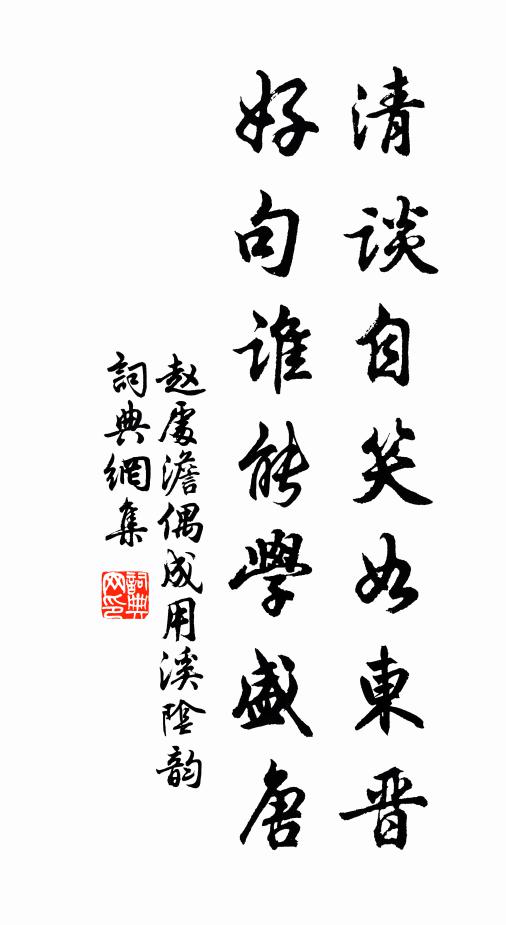 清談自笑如東晋
好句誰能學盛唐
赵處澹偶成用溪陰韵
詞典網集
詞典网印